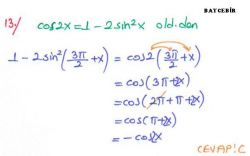 BAYCEBİR
13/ cos2x = 1 - 2sin²x old.dan
1 - 2sin²(3π/2 + x) = cos2(3π/2 + x)
= cos(3π + 2x)
= cos(2π + π + 2x)
= cos(π + 2x)
= - cos2x
CEVAP: C